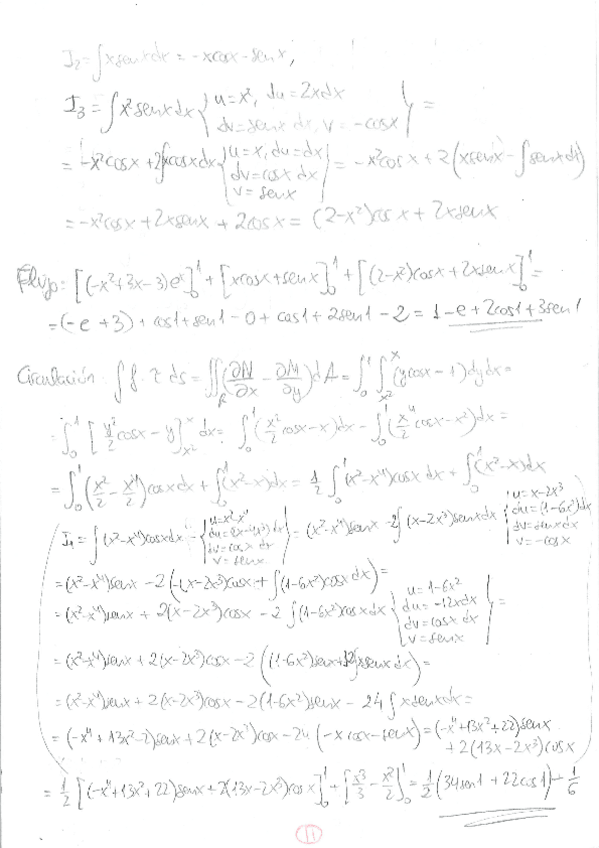 I₂ = ∫x senx dx = -x cosx - senx,
I₃ = ∫x² senx dx { u = x², du = 2x dx
dv = senx dx, v = -cosx } =
= -x² cosx + 2∫x cosx dx { u = x, du = dx
dv = cosx dx
v = senx } = -x² cosx + 2(x senx - ∫senx dx)
= -x² cosx + 2x senx + 2cosx = (2-x²)cosx + 2x senx
Flujo: = [(-x²+3x-3)eˣ]₀¹ + [x cosx + senx]₀¹ + [(2-x²)cosx + 2x senx]₀¹ =
= (-e+3) + cos1 + sen1 - 0 + cos1 + 2sen1 - 2 = 1 - e + 2cos1 + 3sen1
Circulación: ∫f·τ ds = ∬_R (∂N/∂x - ∂M/∂y) dA = ∫₀¹ ∫_{x²}^{x} (y cosx - 1) dy dx =
= ∫₀¹ [y²/2 cosx - y]_{x²}^{x} dx = ∫₀¹ (x²/2 cosx - x) dx - ∫₀¹ (x⁴/2 cosx - x²) dx =
= ∫₀¹ (x²/2 - x⁴/2) cosx dx + ∫₀¹ (x² - x) dx = 1/2 ∫₀¹ (x² - x⁴) cosx dx + ∫₀¹ (x² - x) dx
I₁ = ∫(x² - x⁴) cosx dx = { u = x² - x⁴
du = (2x - 4x³) dx
dv = cosx dx
v = senx } = (x² - x⁴) senx - 2∫(x - 2x³) senx dx { u = x - 2x³
du = (1 - 6x²) dx
dv = senx dx
v = -cosx
= (x² - x⁴) senx - 2(-(x - 2x³) cosx + ∫(1 - 6x²) cosx dx) =
= (x² - x⁴) senx + 2(x - 2x³) cosx - 2∫(1 - 6x²) cosx dx { u = 1 - 6x²
du = -12x dx
dv = cosx dx
v = senx } =
= (x² - x⁴) senx + 2(x - 2x³) cosx - 2((1 - 6x²) senx + 12∫x senx dx) =
= (x² - x⁴) senx + 2(x - 2x³) cosx - 2(1 - 6x²) senx - 24∫x senx dx =
= (-x⁴ + 13x² - 2) senx + 2(x - 2x³) cosx - 24(-x cosx - senx) = (-x⁴ + 13x² + 22) senx
+ 2(13x - 2x³) cosx
= 1/2 [(-x⁴ + 13x² + 22) senx + 2(13x - 2x³) cosx]₀¹ + [x³/3 - x²/2]₀¹ = 1/2 (34sen1 + 22cos1) - 1/6
11